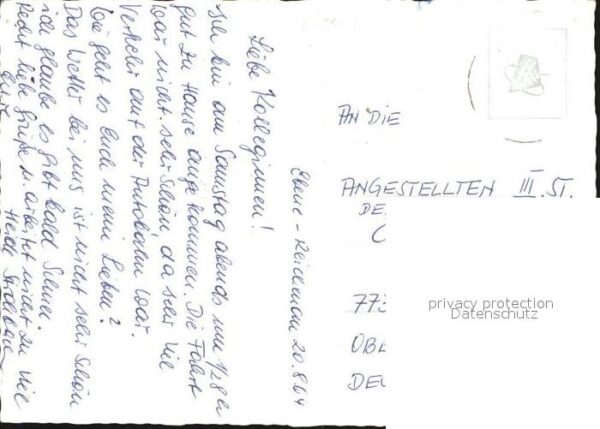 Ebene-Reichenau 20.8.64
Liebe Kolleginnen!
Ich bin am Samstag abends um 1/2 8 h
gut zu Hause angekommen. Die Fahrt
war nicht sehr schön, da sehr viel
Verkehr auf der Autobahn war.
Wie geht es Euch meine Lieben?
Das Wetter bei uns ist nicht sehr schön
ich glaube es gibt bald Schnee.
Recht liebe Grüße u. arbeitet nicht zu viel
Eure
Heidi
AN DIE
ANGESTELLTEN III. ST.
DE
C
773
OBE
DEU
privacy protection
Datenschutz